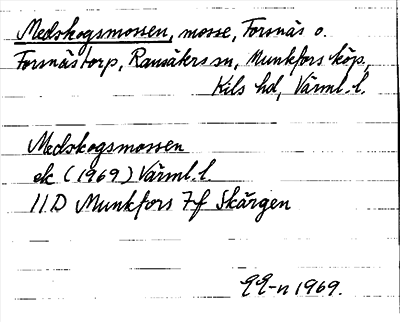 Medskogsmossen, mosse, Forsnäs o.
Forsnästorp, Ransäters sn, Munkfors köp,
Kils hd, Värml. l.
Medskogsmossen
ek (1969) Värml. l.
11D Munkfors 7f Skärgen
1969.